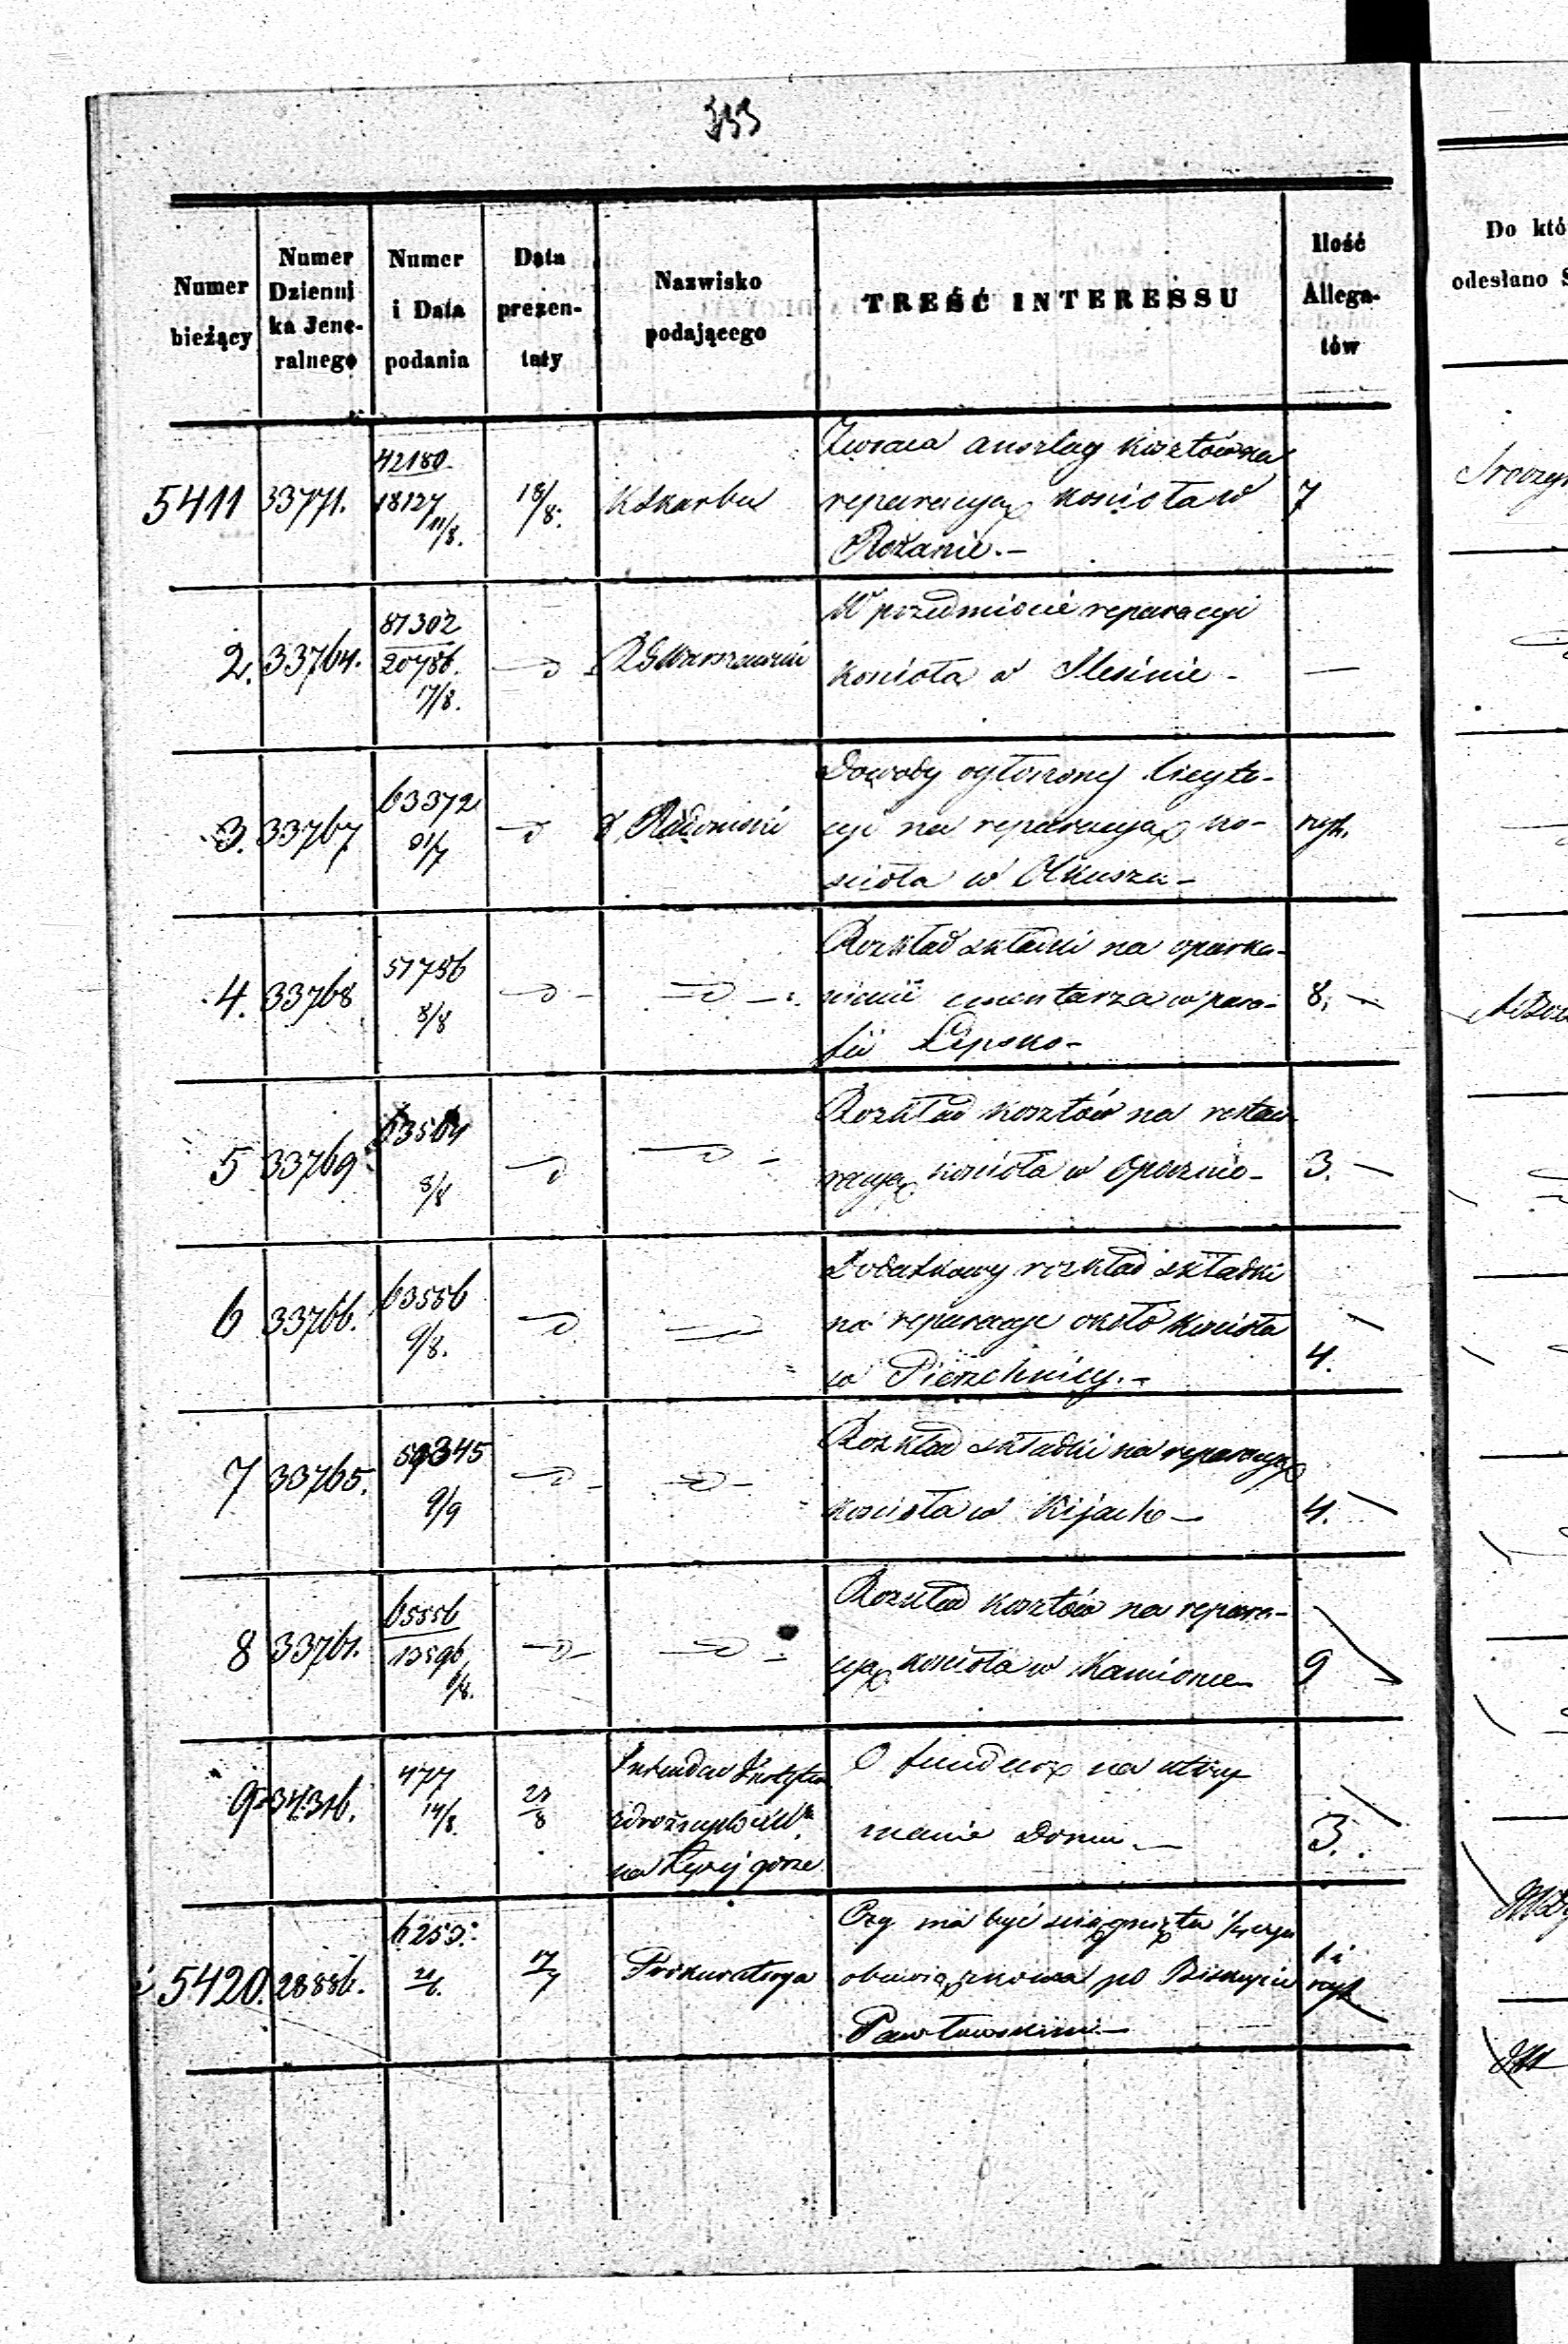 333
Numer bieżący
Numer Dzienni ka Jene- ralnego
Numer i Data podania
Data prezen- taty
Nazwisko podającego
TREŚĆ INTERESSU
Ilość Allega- tów
Do któ
odesłano S
5411 33771. 42180. 18127 11/8. 18/8. K Skarbu
Zwraca anszlag kosztów na
reparacyą kościoła w
Rożanie.—
7
2. 33764. 81302 20786. 17/8. — d RG Warszawski
W przedmiocie reparacyi
kościoła w Slesinie —
—
3. 33767 63372 31/7 — d d Radomski
Dowody ogłoszonej licyta-
cyi na reparacyą ko-
ścioła w Olkuszu —
4. 33768 51786 8/8 — d — — d —
Rozkład składki na oparka-
nienie cmentarza w para-
fii Lipsko —
8.
5 33769 8/8 — d — d —
Rozkład kosztów na restau
racyą kościoła w Opocznie —
3. —
6 33766. 63556 9/8. — d
Dodatkowy rozkład składki
na reparacye około kościoła
w Pierzchnicy. —
4.
7 33765. 59345 9/9 — d — — d —
Rozkład składki na reparacyą
kościoła w Kijach —
4.
8 33761. 65556 13596 6/8. — d — — d —
Rozkład kosztów na repara-
cyą kościoła w Kamionce —
9
9 34316. 477 14/8. 8
na Łysej górze
O fundusz na utrzy
manie Domu. —
3.
5420. 28886. 6253. 17/7 Prokuratorya
Czy ma być ściągnięta
obowiązkowa po Biskupie
Pawłowskim —